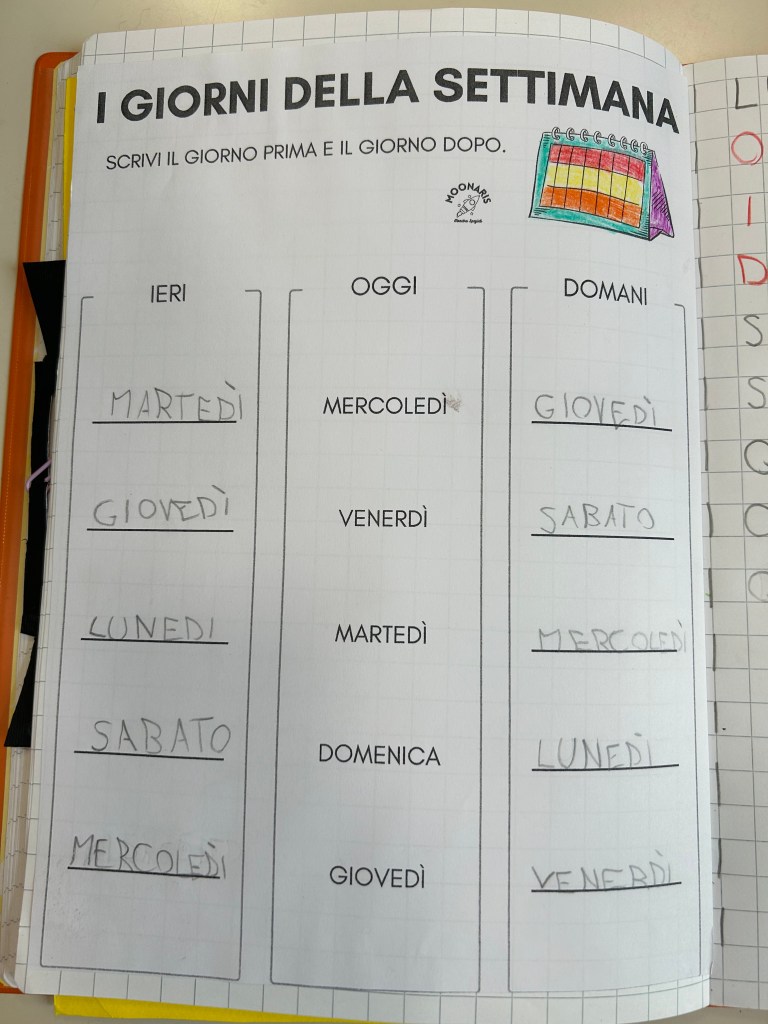 I GIORNI DELLA SETTIMANA
SCRIVI IL GIORNO PRIMA E IL GIORNO DOPO.
MOONARIS
IERI OGGI DOMANI
MARTEDÌ MERCOLEDÌ GIOVEDÌ
GIOVEDÌ VENERDÌ SABATO
LUNEDI MARTEDÌ MERCOLEDÌ
SABATO DOMENICA LUNEDÌ
MERCOLEDÌ GIOVEDÌ VENERDÌ
L
O
I
D
S
S